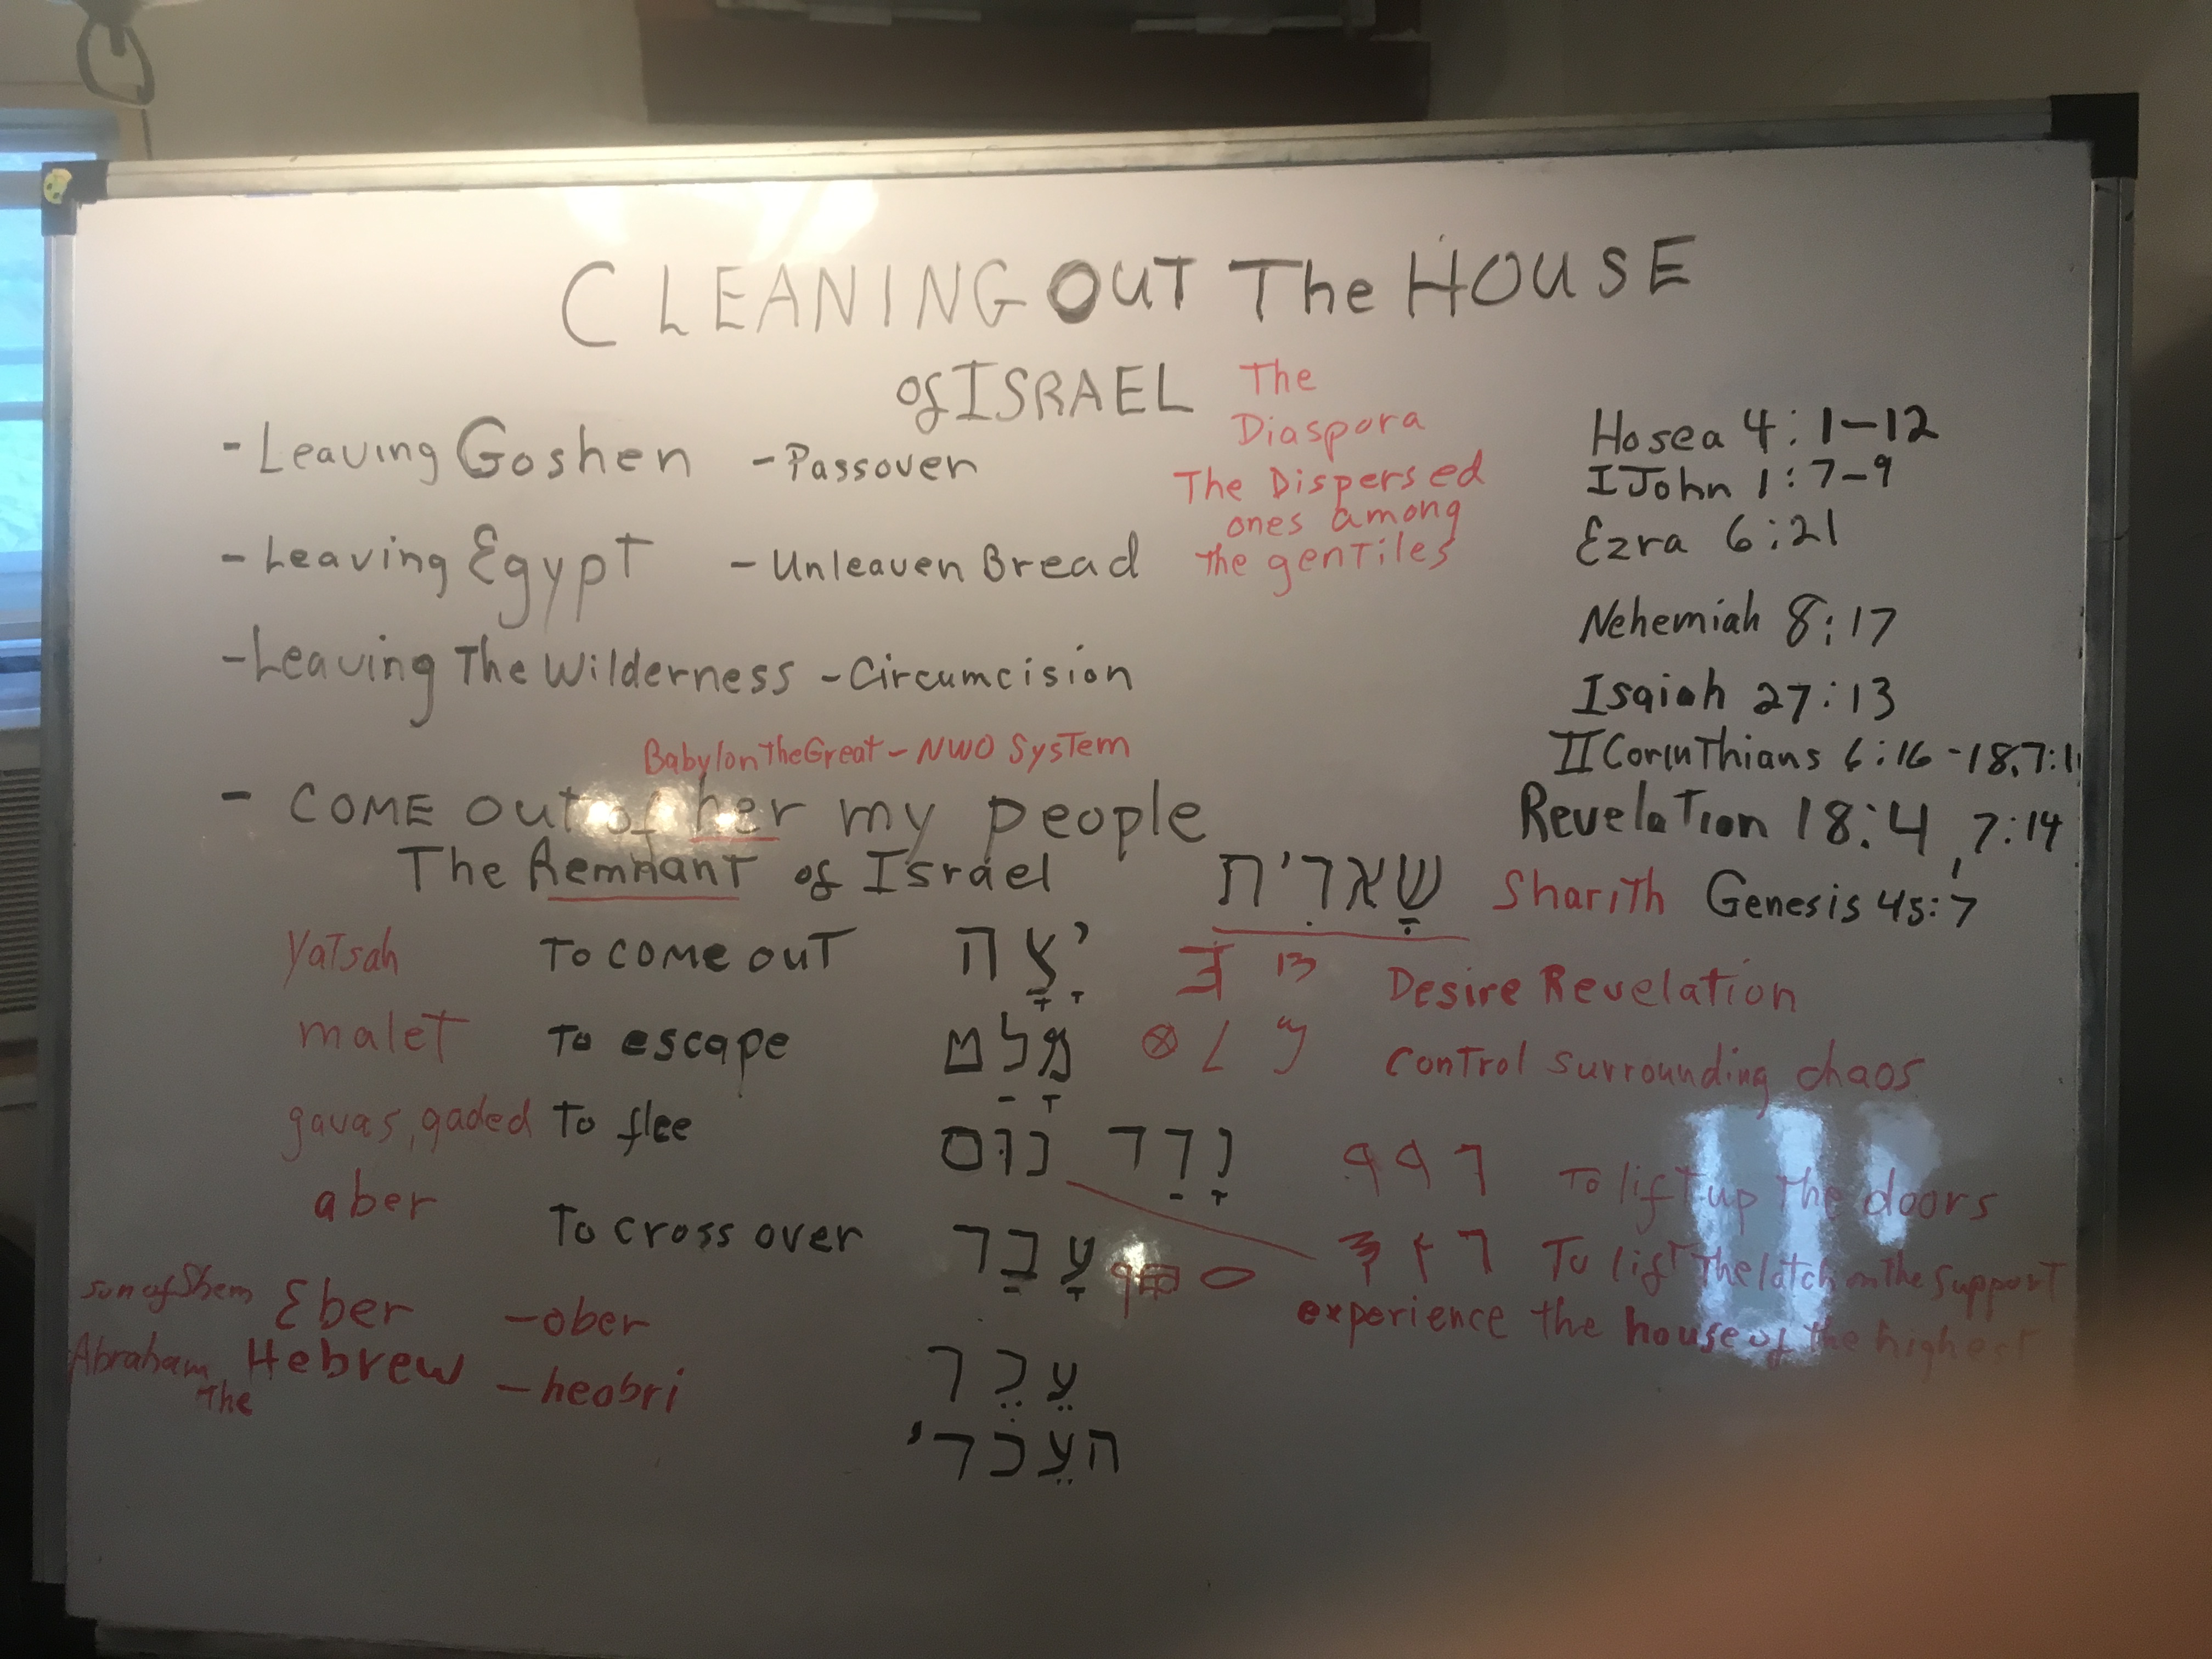 CLEANING OUT The HOUSE
of ISRAEL
The
Diaspora
The Dispersed
ones among
the genTiles
- Leaving Goshen - Passover
- Leaving Egypt - Unleaven Bread
- Leaving The Wilderness - Circumcision
Babylon the Great - NWO SysTem
- COME Out of her my people
The Remnant of Israel שָׁארִית Sharith Genesis 45:7
Hosea 4:1-12
I John 1:7-9
Ezra 6:21
Nehemiah 8:17
Isaiah 27:13
II Corinthians 6:16-18, 7:1
Revelation 18:4, 7:14
YaTsah To come ouT יָצָה Desire Revelation
maleT To escape מָלַט ConTrol surrounding chaos
gavas, gaded To flee נוּס נָדַד To lift up the doors
To lifT The latch on the supporT
aber To cross over עָבַר experience the house of the highest
son of Shem Eber - ober עֵבֶר
Abraham The Hebrew - heobri העֵברי